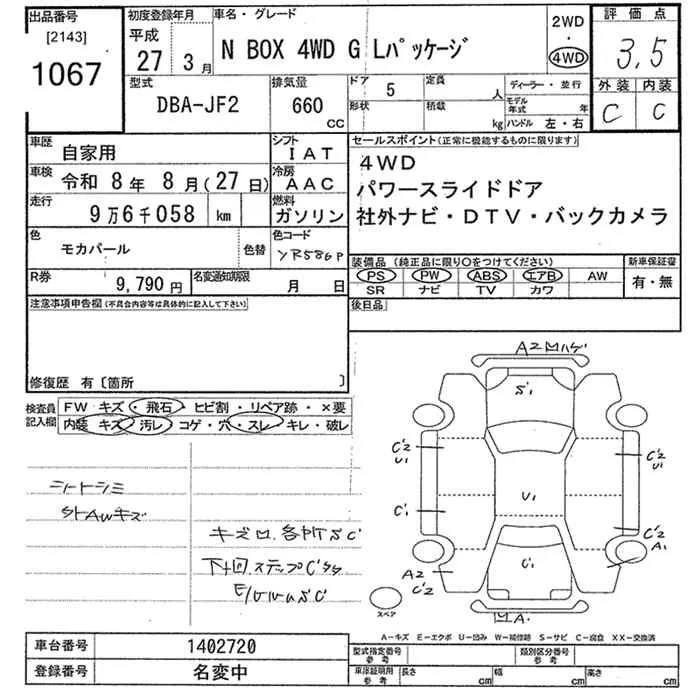 出品番号
[2143]
1067
初度登録年月
平成
27 3月
車名・グレード
N BOX 4WD G Lパッケージ
2WD
・
4WD
評価点
3.5
外装 内装
C C
型式
DBA-JF2
排気量
660
CC
ドア 5
定員 人
形状
積載 kg
ディーラー・並行
モデル年式 年
ハンドル 左・右
車歴 自家用
シフト IAT
車検 令和 8年 8月(27日)
冷房 AAC
走行 9万6千058 km
燃料 ガソリン
色 モカパール
色替
色コード YR586P
R券 9,790円
名変通知期限 月 日
セールスポイント(正常に機能するものに限ります)
4WD
パワースライドドア
社外ナビ・DTV・バックカメラ
装備品(純正品に限り○をつけてください)
PS PW ABS エアB AW
SR ナビ TV カワ
新車保証書
有・無
注意事項申告欄(不具合内容等は具体的に記入して下さい)
後日品
修復歴 有〔箇所 〕
検査員記入欄
FW キズ・飛石・ヒビ割・リペア跡・×要
内装 キズ・汚レ・コゲ・穴・スレ・キレ・破レ
シートシミ
キズ凹、各所SC
下回、ステップC
A2
S1
C2
U1
C2
U1
C1
U1
C2
A1
A2
C2
C1
A
スペア
A-キズ E-エクボ U-凹み W-補修跡 S-サビ C-腐食 XX-交換済
車台番号 1402720
登録番号 名変中
型式指定番号 参考
類別区分番号 参考
車庫証明用 参考
長さ cm 幅 cm 高さ cm